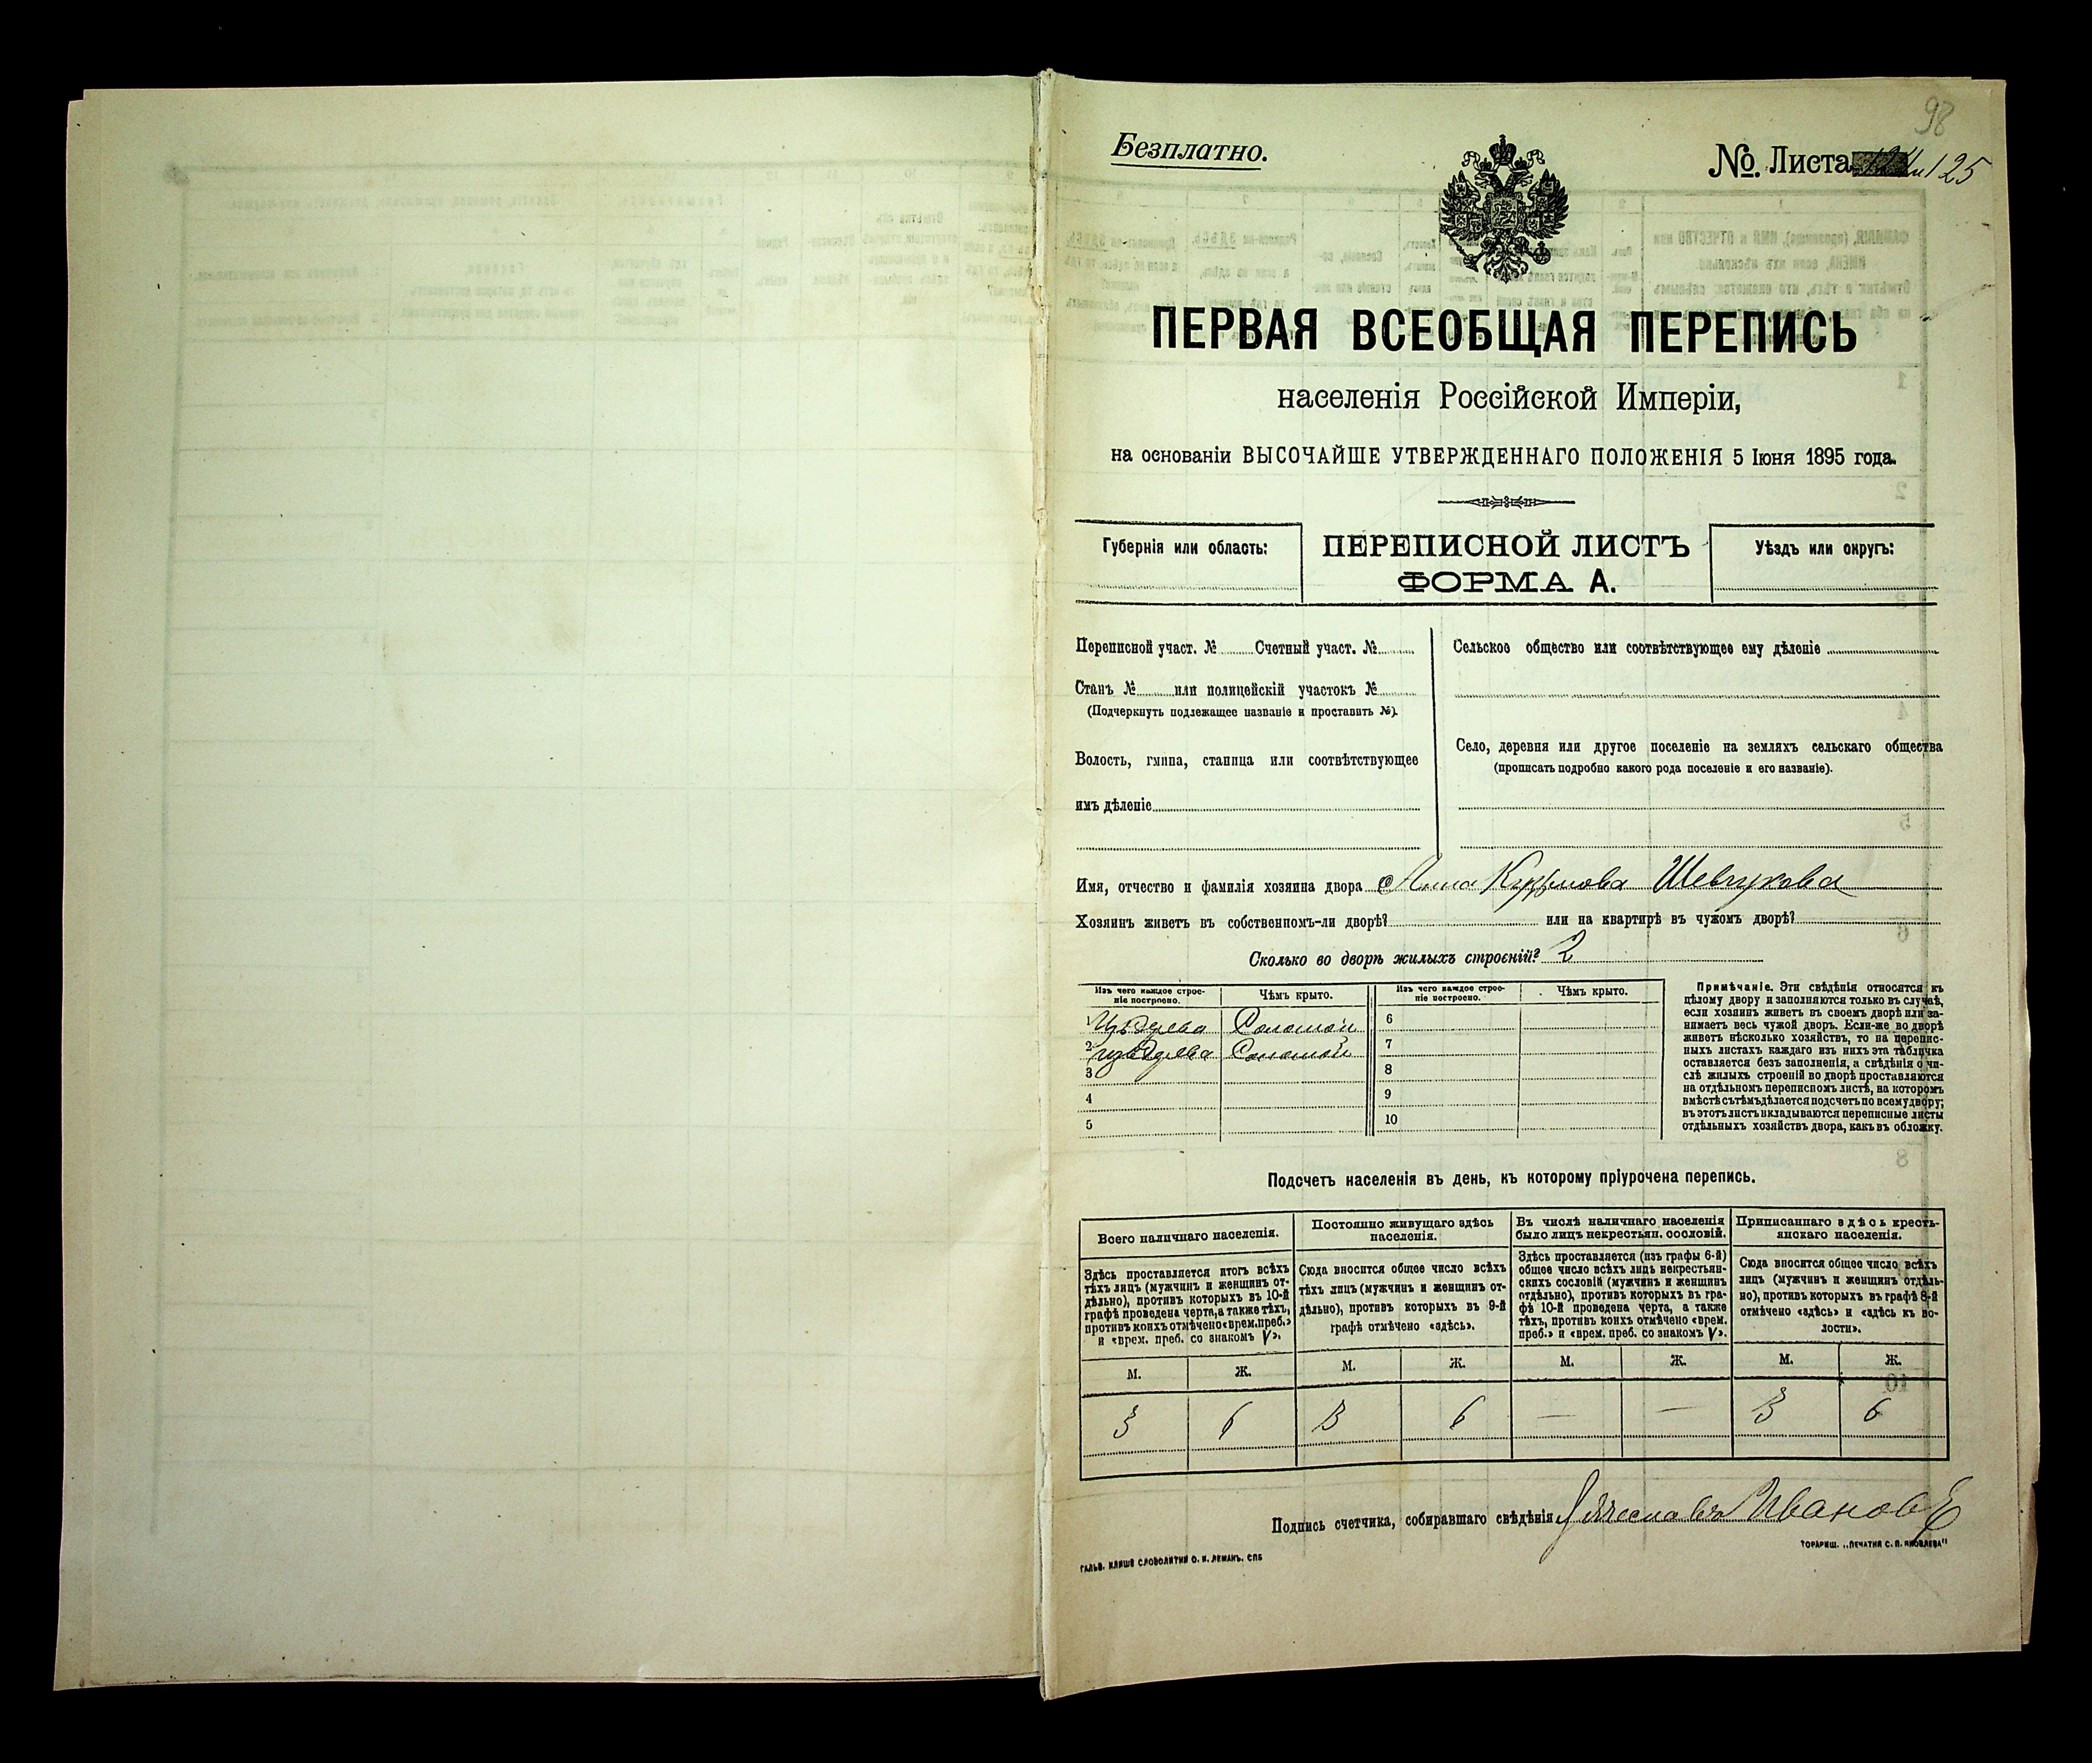 98
Безплатно.
№ Листа 125
ПЕРВАЯ ВСЕОБЩАЯ ПЕРЕПИСЬ
населенія Россійской Имперіи,
на основаніи ВЫСОЧАЙШЕ УТВЕРЖДЕННАГО ПОЛОЖЕНІЯ 5 Іюня 1895 года.
Губернія или область:
ПЕРЕПИСНОЙ ЛИСТЪ
ФОРМА А.
Уѣздъ или округъ:
Переписной участ. № Счетный участ. №
Станъ № или полицейскій участокъ №
(Подчеркнуть подлежащее названіе и проставить №).
Волость, гмина, станица или соотвѣтствующее
имъ дѣленіе
Сельское общество или соотвѣтствующее ему дѣленіе
Село, деревня или другое поселеніе на земляхъ сельскаго общества
(прописать подробно какого рода поселеніе и его названіе).
Имя, отчество и фамилія хозяина двора Анна Кузьмова Шевчукова
Хозяинъ живетъ въ собственномъ-ли дворѣ? или на квартирѣ въ чужомъ дворѣ?
Сколько во дворѣ жилыхъ строеній? 2
Изъ чего каждое строе-
ніе построено.
Чѣмъ крыто.
Изъ чего каждое строе-
ніе построено.
Чѣмъ крыто.
1 Изъ древа Соломой 6
2 изъ древа Соломой 7
3 8
4 9
5 10
Примѣчаніе. Эти свѣдѣнія относятся къ
цѣлому двору и заполняются только въ случаѣ,
если хозяинъ живетъ въ своемъ дворѣ или за-
нимаетъ весь чужой дворъ. Если-же во дворѣ
живетъ нѣсколько хозяйствъ, то на перепис-
ныхъ листахъ каждаго изъ нихъ эта табличка
оставляется безъ заполненія, а свѣдѣнія о чи-
слѣ жилыхъ строеній во дворѣ проставляются
на отдѣльномъ переписномъ листѣ, на которомъ
вмѣстѣ съ тѣмъ дѣлается подсчетъ по всему двору;
въ этотъ листъ вкладываются переписные листы
отдѣльныхъ хозяйствъ двора, какъ въ обложку.
Подсчетъ населенія въ день, къ которому пріурочена перепись.
Всего наличнаго населенія.
Здѣсь проставляется итогъ всѣхъ
тѣхъ лицъ (мужчинъ и женщинъ от-
дѣльно), противъ которыхъ въ 10-й
графѣ проведена черта, а также тѣхъ,
противъ коихъ отмѣчено «врем. преб.»
и «врем. преб. со знакомъ V».
Постоянно живущаго здѣсь
населенія.
Сюда вносится общее число всѣхъ
тѣхъ лицъ (мужчинъ и женщинъ от-
дѣльно), противъ которыхъ въ 9-й
графѣ отмѣчено «здѣсь».
Въ числѣ наличнаго населенія
было лицъ некрестьян. сословій.
Здѣсь проставляется (изъ графы 6-й)
общее число всѣхъ лицъ некрестьян-
скихъ сословій (мужчинъ и женщинъ
отдѣльно), противъ которыхъ въ гра-
фѣ 10-й проведена черта, а также
тѣхъ, противъ коихъ отмѣчено «врем.
преб.» и «врем. преб. со знакомъ V».
Приписаннаго здѣсь кресть-
янскаго населенія.
Сюда вносится общее число всѣхъ
лицъ (мужчинъ и женщинъ отдѣль-
но), противъ которыхъ въ графѣ 8-й
отмѣчено «здѣсь» и «здѣсь къ во-
лости».
М. Ж. М. Ж. М. Ж. М. Ж.
3 6 3 6 — — 3 6
Подпись счетчика, собиравшаго свѣдѣнія Вячеславъ Ивановъ
ГАЛЬВ. КЛИШЕ СЛОВОЛИТНИ О. И. ЛЕМАНЪ. СПБ
ТОВАРИЩ. „ПЕЧАТНЯ С. П. ЯКОВЛЕВА"